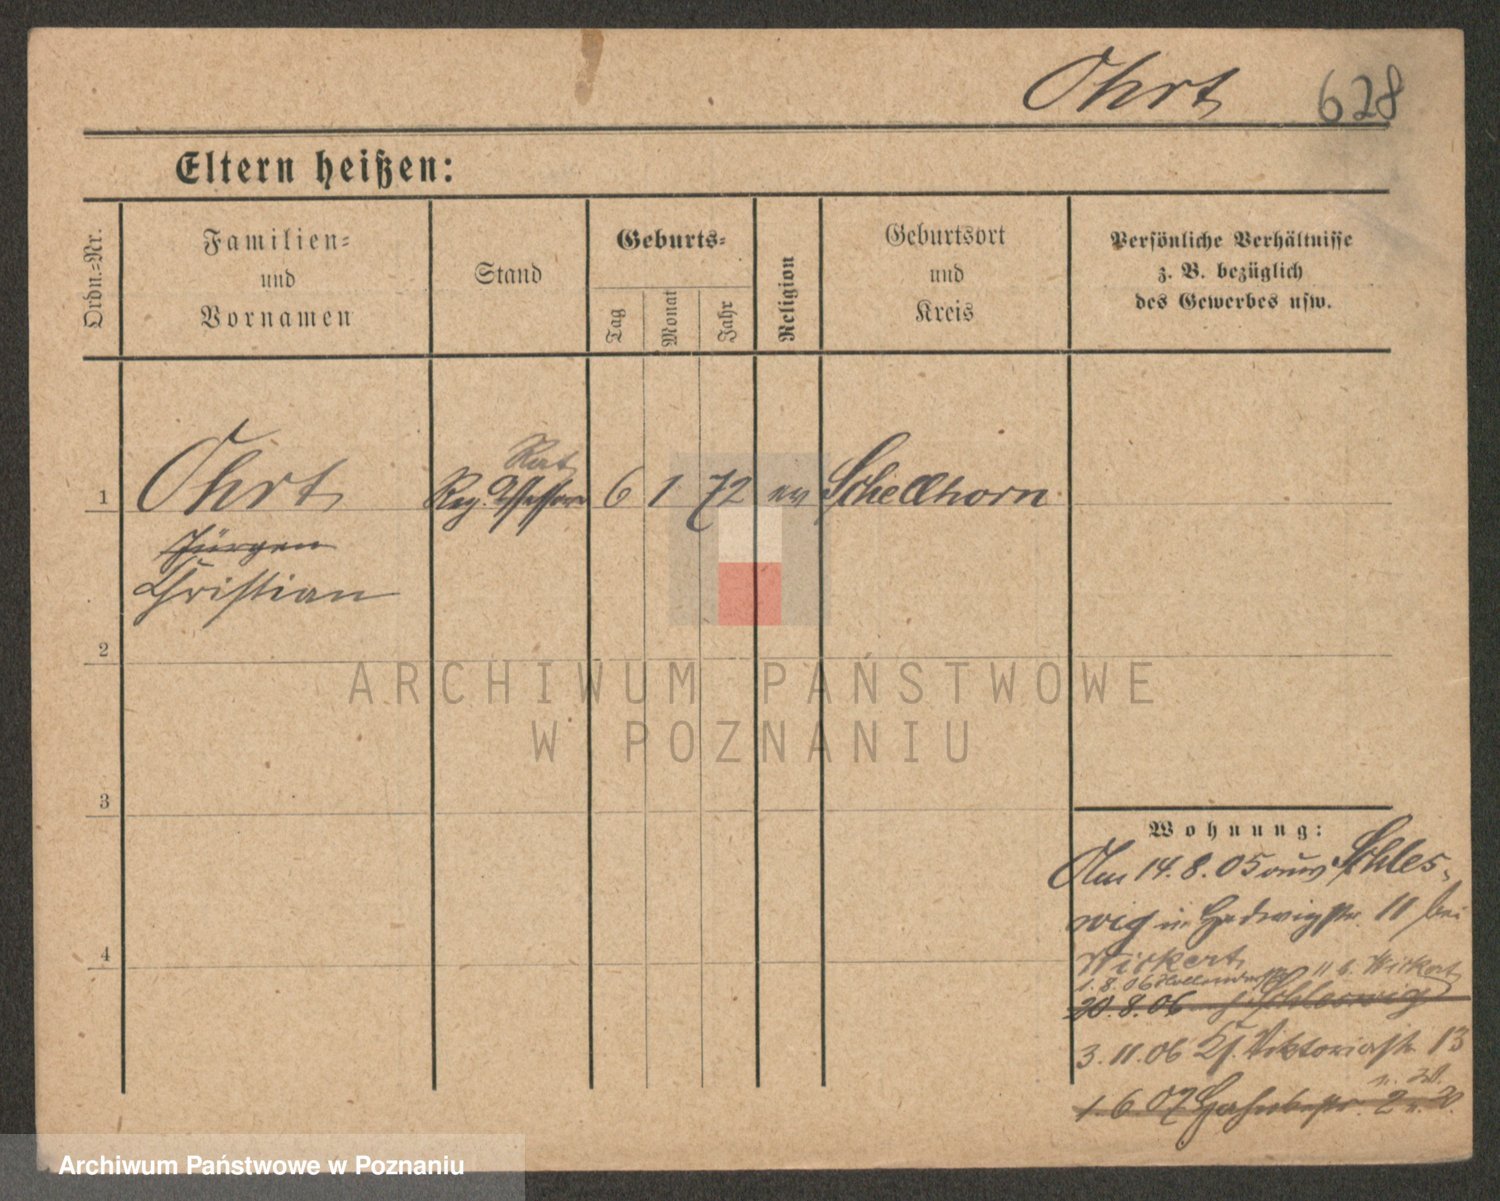 Ohrt 628
Eltern heißen:
Ordn.=Nr.
Familien=
und
Vornamen
Stand
Geburts=
Tag
Monat
Jahr
Religion
Geburtsort
und
Kreis
Persönliche Verhältnisse
z. B. bezüglich
des Gewerbes usw.
Rat
1 Ohrt Reg. Assessor 6 1 72 ev Schellhorn
Jürgen
Christian
2
ARCHIWUM PAŃSTWOWE
W POZNANIU
3
Wohnung:
Am 14.8.05 aus Schles-
wig in Hedwigstr. 11 bei
Wickert
1.8.06 11 b. Wickert
20.8.06 Schleswig
3.11.06 Viktoriastr. 13
1.6.07 2
4
Archiwum Państwowe w Poznaniu